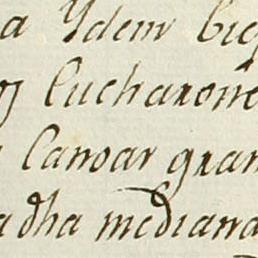 a Ydem bie
Cucharone
Canoar gran
adha mediana